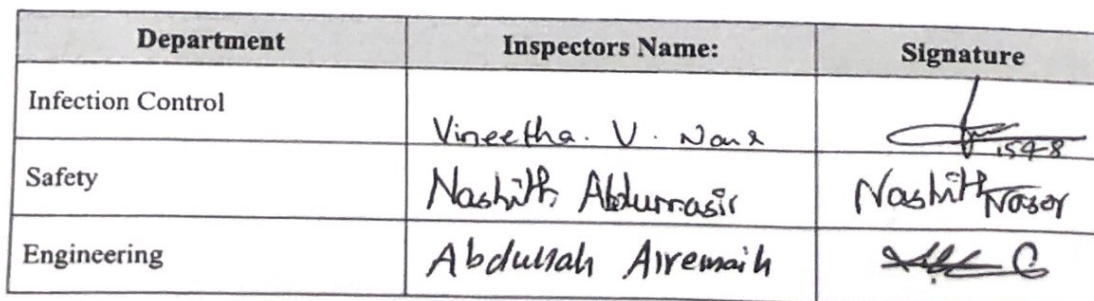 Department Inspectors Name: Signature
Infection Control
Vineetha. V. 1598
Safety Nashith Abdurrasir Nashith Naser
Engineering Abdullah Airemaih